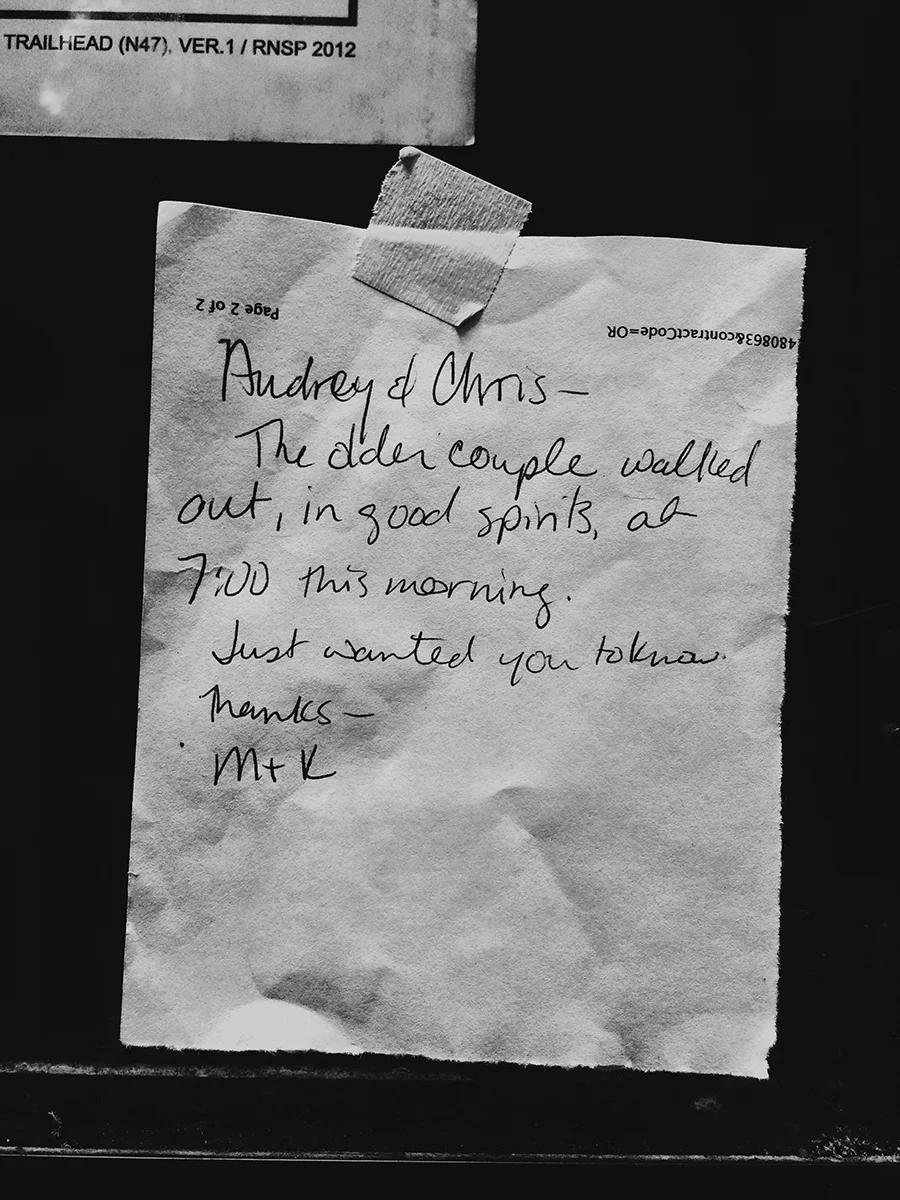 TRAILHEAD (N47), VER.1 / RNSP 2012
Page 2 of 2
480863&contractCode=OR
Audrey & Chris —
The older couple walked
out, in good spirits, at
7:00 this morning.
Just wanted you to know.
Thanks —
M + K